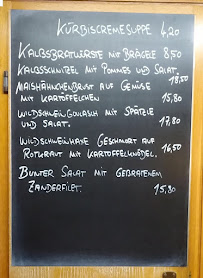 Kürbiscremesuppe 4,20
Kalbsbratwürste mit Brägele 8,50
Kalbsschnitzel mit Pommes und Salat. 18,50
Maishähnchenbrust auf Gemüse
mit Kartöffelchen 15,80
Wildschweingoulasch mit Spätzle
und Salat. 17,80
Wildschweinhaxe Geschmort auf
Rotkraut mit Kartoffelknödel. 16,50
Bunter Salat mit Gebratenem
Zanderfilet. 15,80